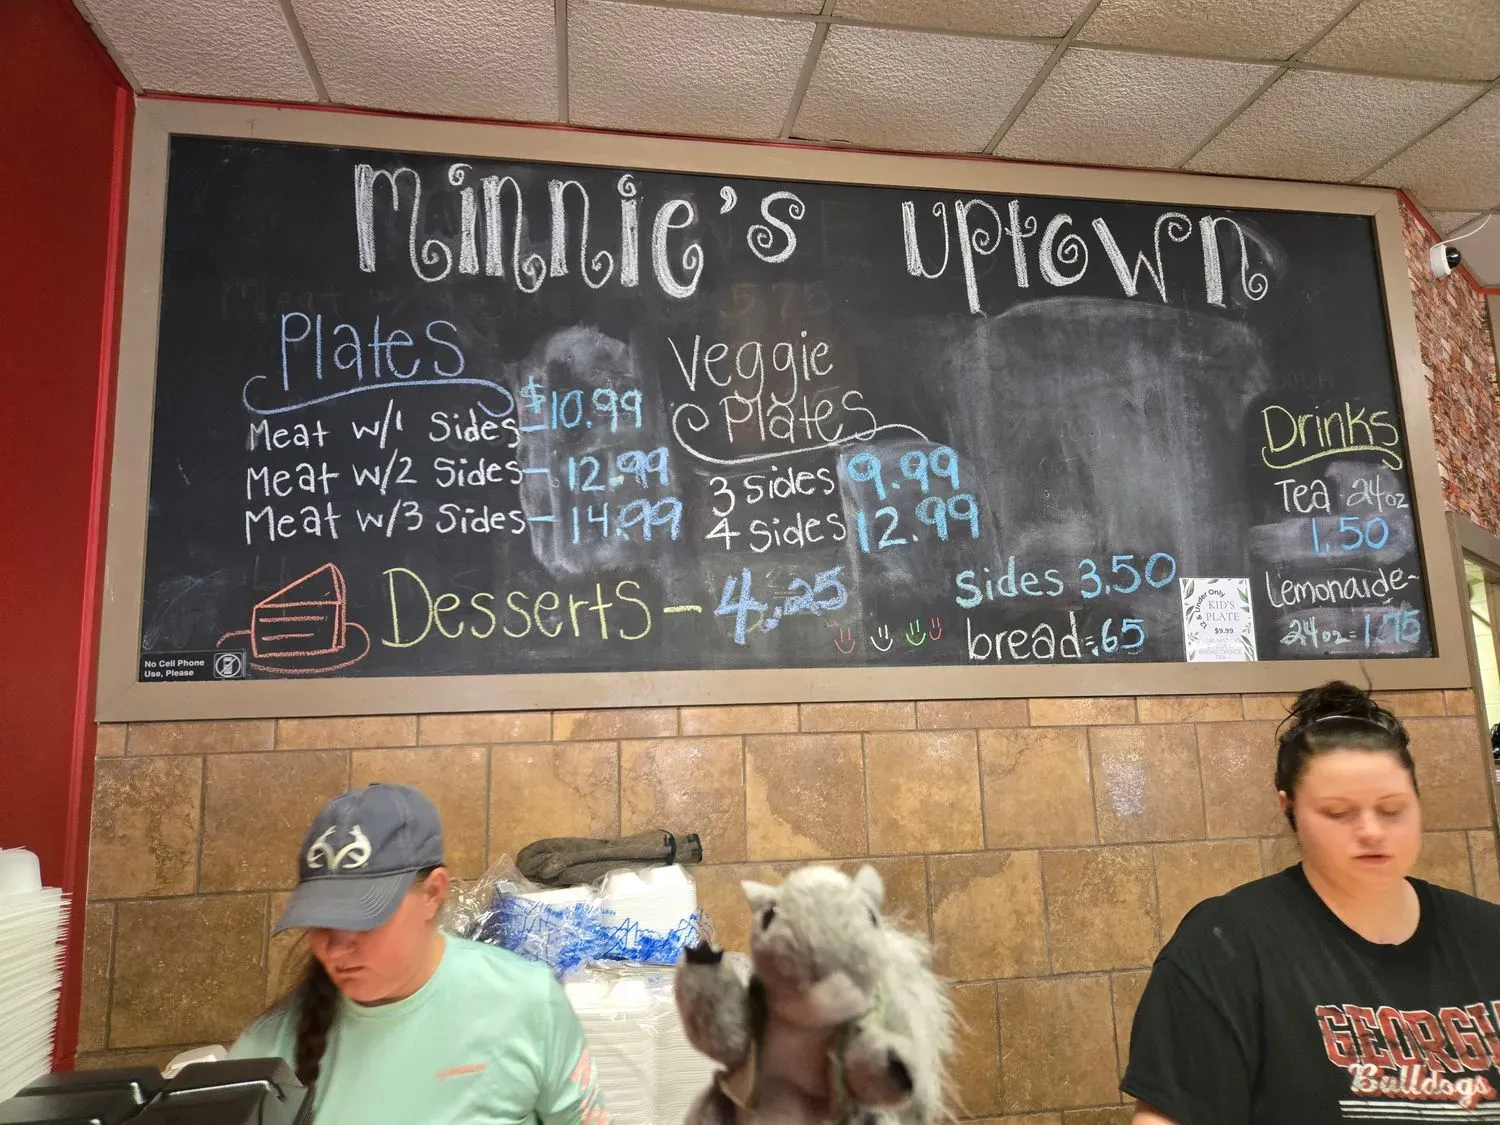 Minnie's Uptown
Plates
Meat w/1 Sides - $10.99
Meat w/2 Sides - 12.99
Meat w/3 Sides - 14.99
Veggie
Plates
3 sides 9.99
4 sides 12.99
Desserts - 4.25
Sides 3.50
bread = .65
Drinks
Tea 24oz
1.50
Lemonade -
24oz = 1.75
12 & Under Only
KID'S
PLATE
$9.99
BREAD CHOICE
TEA
No Cell Phone
Use, Please
GEORGI
Bulldogs